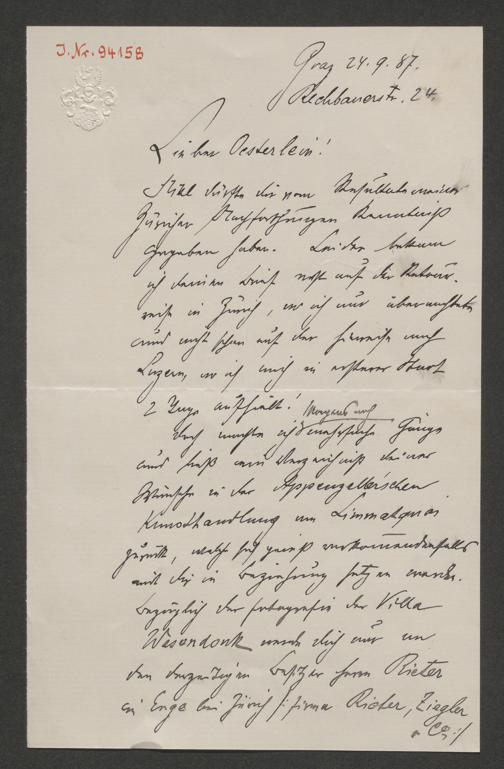 J. Nr. 94158
Graz 24. 9. 87.
Rechbauerstr. 24.
Lieber Oesterlein!
Kühl dürfte dir vom Resultate meiner
Züricher Nachforschungen Kenntniß
gegeben haben. Leider bekam
ich deinen Brief erst auf der Retour-
reise in Zürich, wo ich nur übernachtete
und nicht schon auf der Hinreise nach
Luzern, wo ich mich in ersterer Stadt
2 Tage aufhielt! Morgens noch
doch machte ich mehrfache Gänge
und ließ ein Verzeichniß deiner
Wünsche in der Appenzeller'schen
Kunsthandlung am Limmatquai
zurück, welche sich gewiß vorkommendenfalls
mit dir in Beziehung setzen werde.
Bezüglich der Fotografie der Villa
Wesendonk wende dich nur an
den derzeitigen Besitzer Herrn Rieter
in Enge bei Zürich /: Firma Rieter, Ziegler
& Co :/